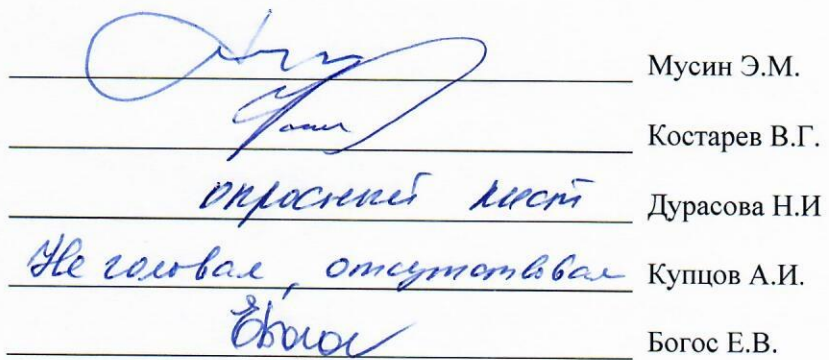 Мусин Э.М.
Костарев В.Г.
опросный лист Дурасова Н.И
Не голосовал, отсутствовал Купцов А.И.
Богос Е.В.